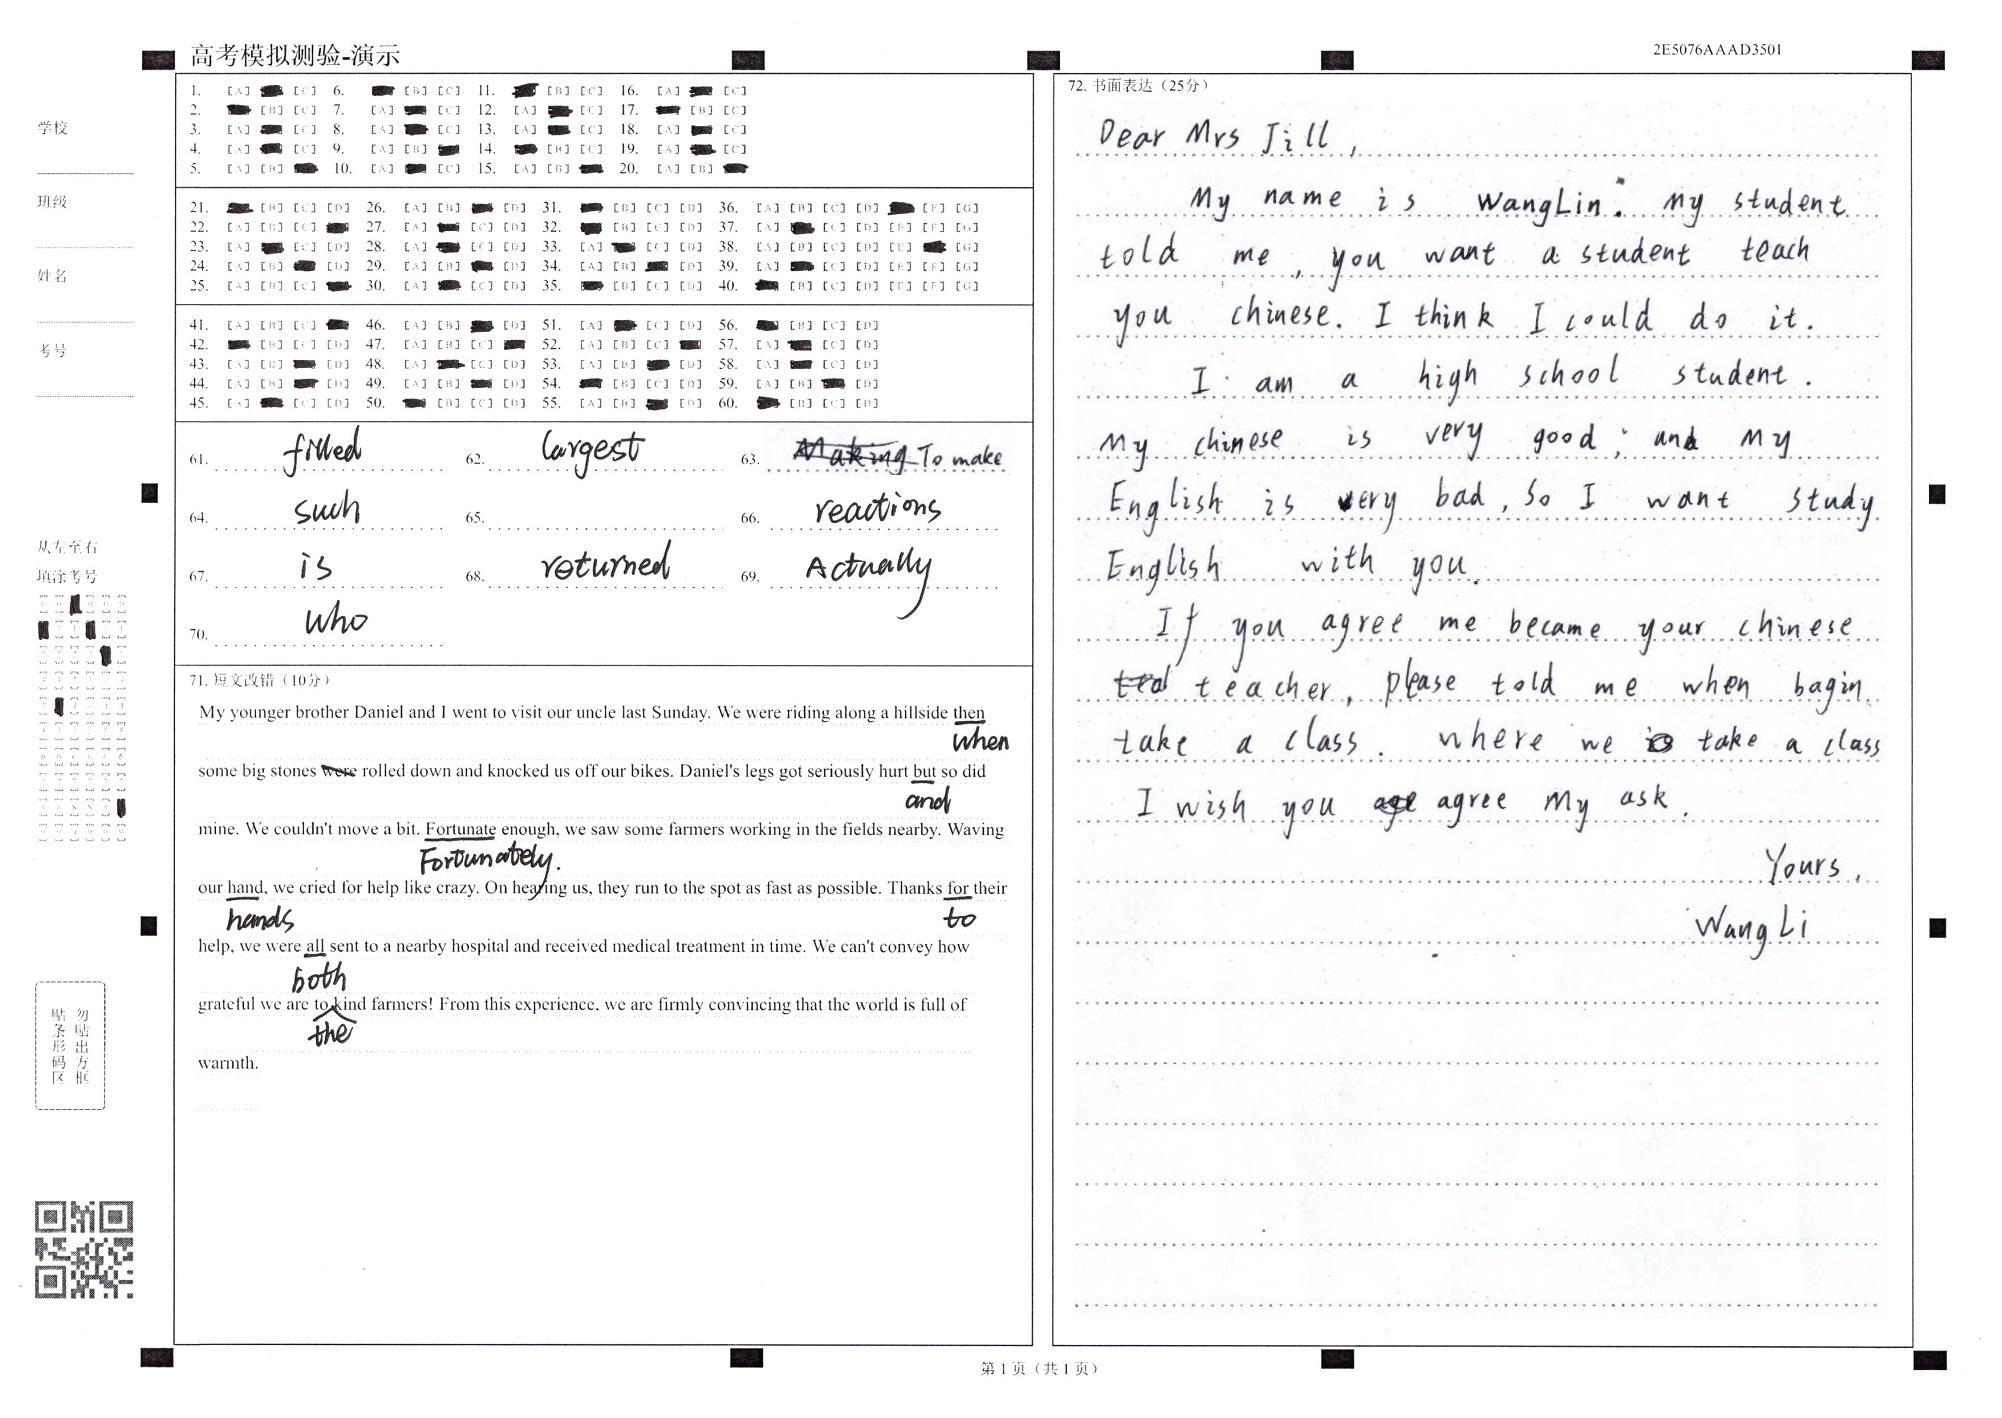 高考模拟测验-演示
2E5076AAAD3501
学校
班级
姓名
考号
从左至右
填涂考号
勿贴出方框
贴条形码区
1. [A] [C] 6. [B] [C] 11. [B] [C] 16. [A] [C]
2. [B] [C] 7. [A] [C] 12. [A] [C] 17. [B] [C]
3. [A] [C] 8. [A] [C] 13. [A] [C] 18. [A] [C]
4. [A] [C] 9. [A] [B] 14. [B] [C] 19. [A] [C]
5. [A] [B] 10. [A] [C] 15. [A] [B] 20. [A] [B]
21. [B] [C] [D] 26. [A] [B] [D] 31. [B] [C] [D] 36. [A] [B] [C] [D] [F] [G]
22. [A] [B] [C] 27. [A] [C] [D] 32. [B] [C] [D] 37. [A] [C] [D] [E] [F] [G]
23. [A] [C] [D] 28. [A] [C] [D] 33. [A] [C] [D] 38. [A] [B] [C] [D] [E] [G]
24. [A] [B] [D] 29. [A] [B] [D] 34. [A] [B] [D] 39. [A] [C] [D] [E] [F] [G]
25. [A] [B] [C] 30. [A] [C] [D] 35. [B] [C] [D] 40. [B] [C] [D] [E] [F] [G]
41. [A] [B] [C] 46. [A] [B] [D] 51. [A] [C] [D] 56. [B] [C] [D]
42. [B] [C] [D] 47. [A] [B] [C] 52. [A] [B] [C] 57. [A] [C] [D]
43. [A] [B] [D] 48. [A] [C] [D] 53. [A] [B] [D] 58. [A] [C] [D]
44. [A] [B] [D] 49. [A] [B] [D] 54. [B] [C] [D] 59. [A] [B] [D]
45. [A] [C] [D] 50. [B] [C] [D] 55. [A] [B] [D] 60. [B] [C] [D]
61. filled 62. largest 63. Making To make
64. such 65. 66. reactions
67. is 68. returned 69. Actually
70. who
71. 短文改错（10分）
My younger brother Daniel and I went to visit our uncle last Sunday. We were riding along a hillside then
when
some big stones were rolled down and knocked us off our bikes. Daniel's legs got seriously hurt but so did
and
mine. We couldn't move a bit. Fortunate enough, we saw some farmers working in the fields nearby. Waving
Fortunately.
our hand, we cried for help like crazy. On hearing us, they run to the spot as fast as possible. Thanks for their
hands to
help, we were all sent to a nearby hospital and received medical treatment in time. We can't convey how
both
grateful we are to kind farmers! From this experience, we are firmly convincing that the world is full of
the
warmth.
72. 书面表达（25分）
Dear Mrs Jill,
My name is WangLin. My student
told me, you want a student teach
you chinese. I think I could do it.
I am a high school student.
My chinese is very good; and My
English is very bad, so I want study
English with you.
If you agree me became your chinese
teacher, please told me when bagin
take a class. where we take a class
I wish you agree My ask.
Yours,
WangLi
第 1 页（共 1 页）